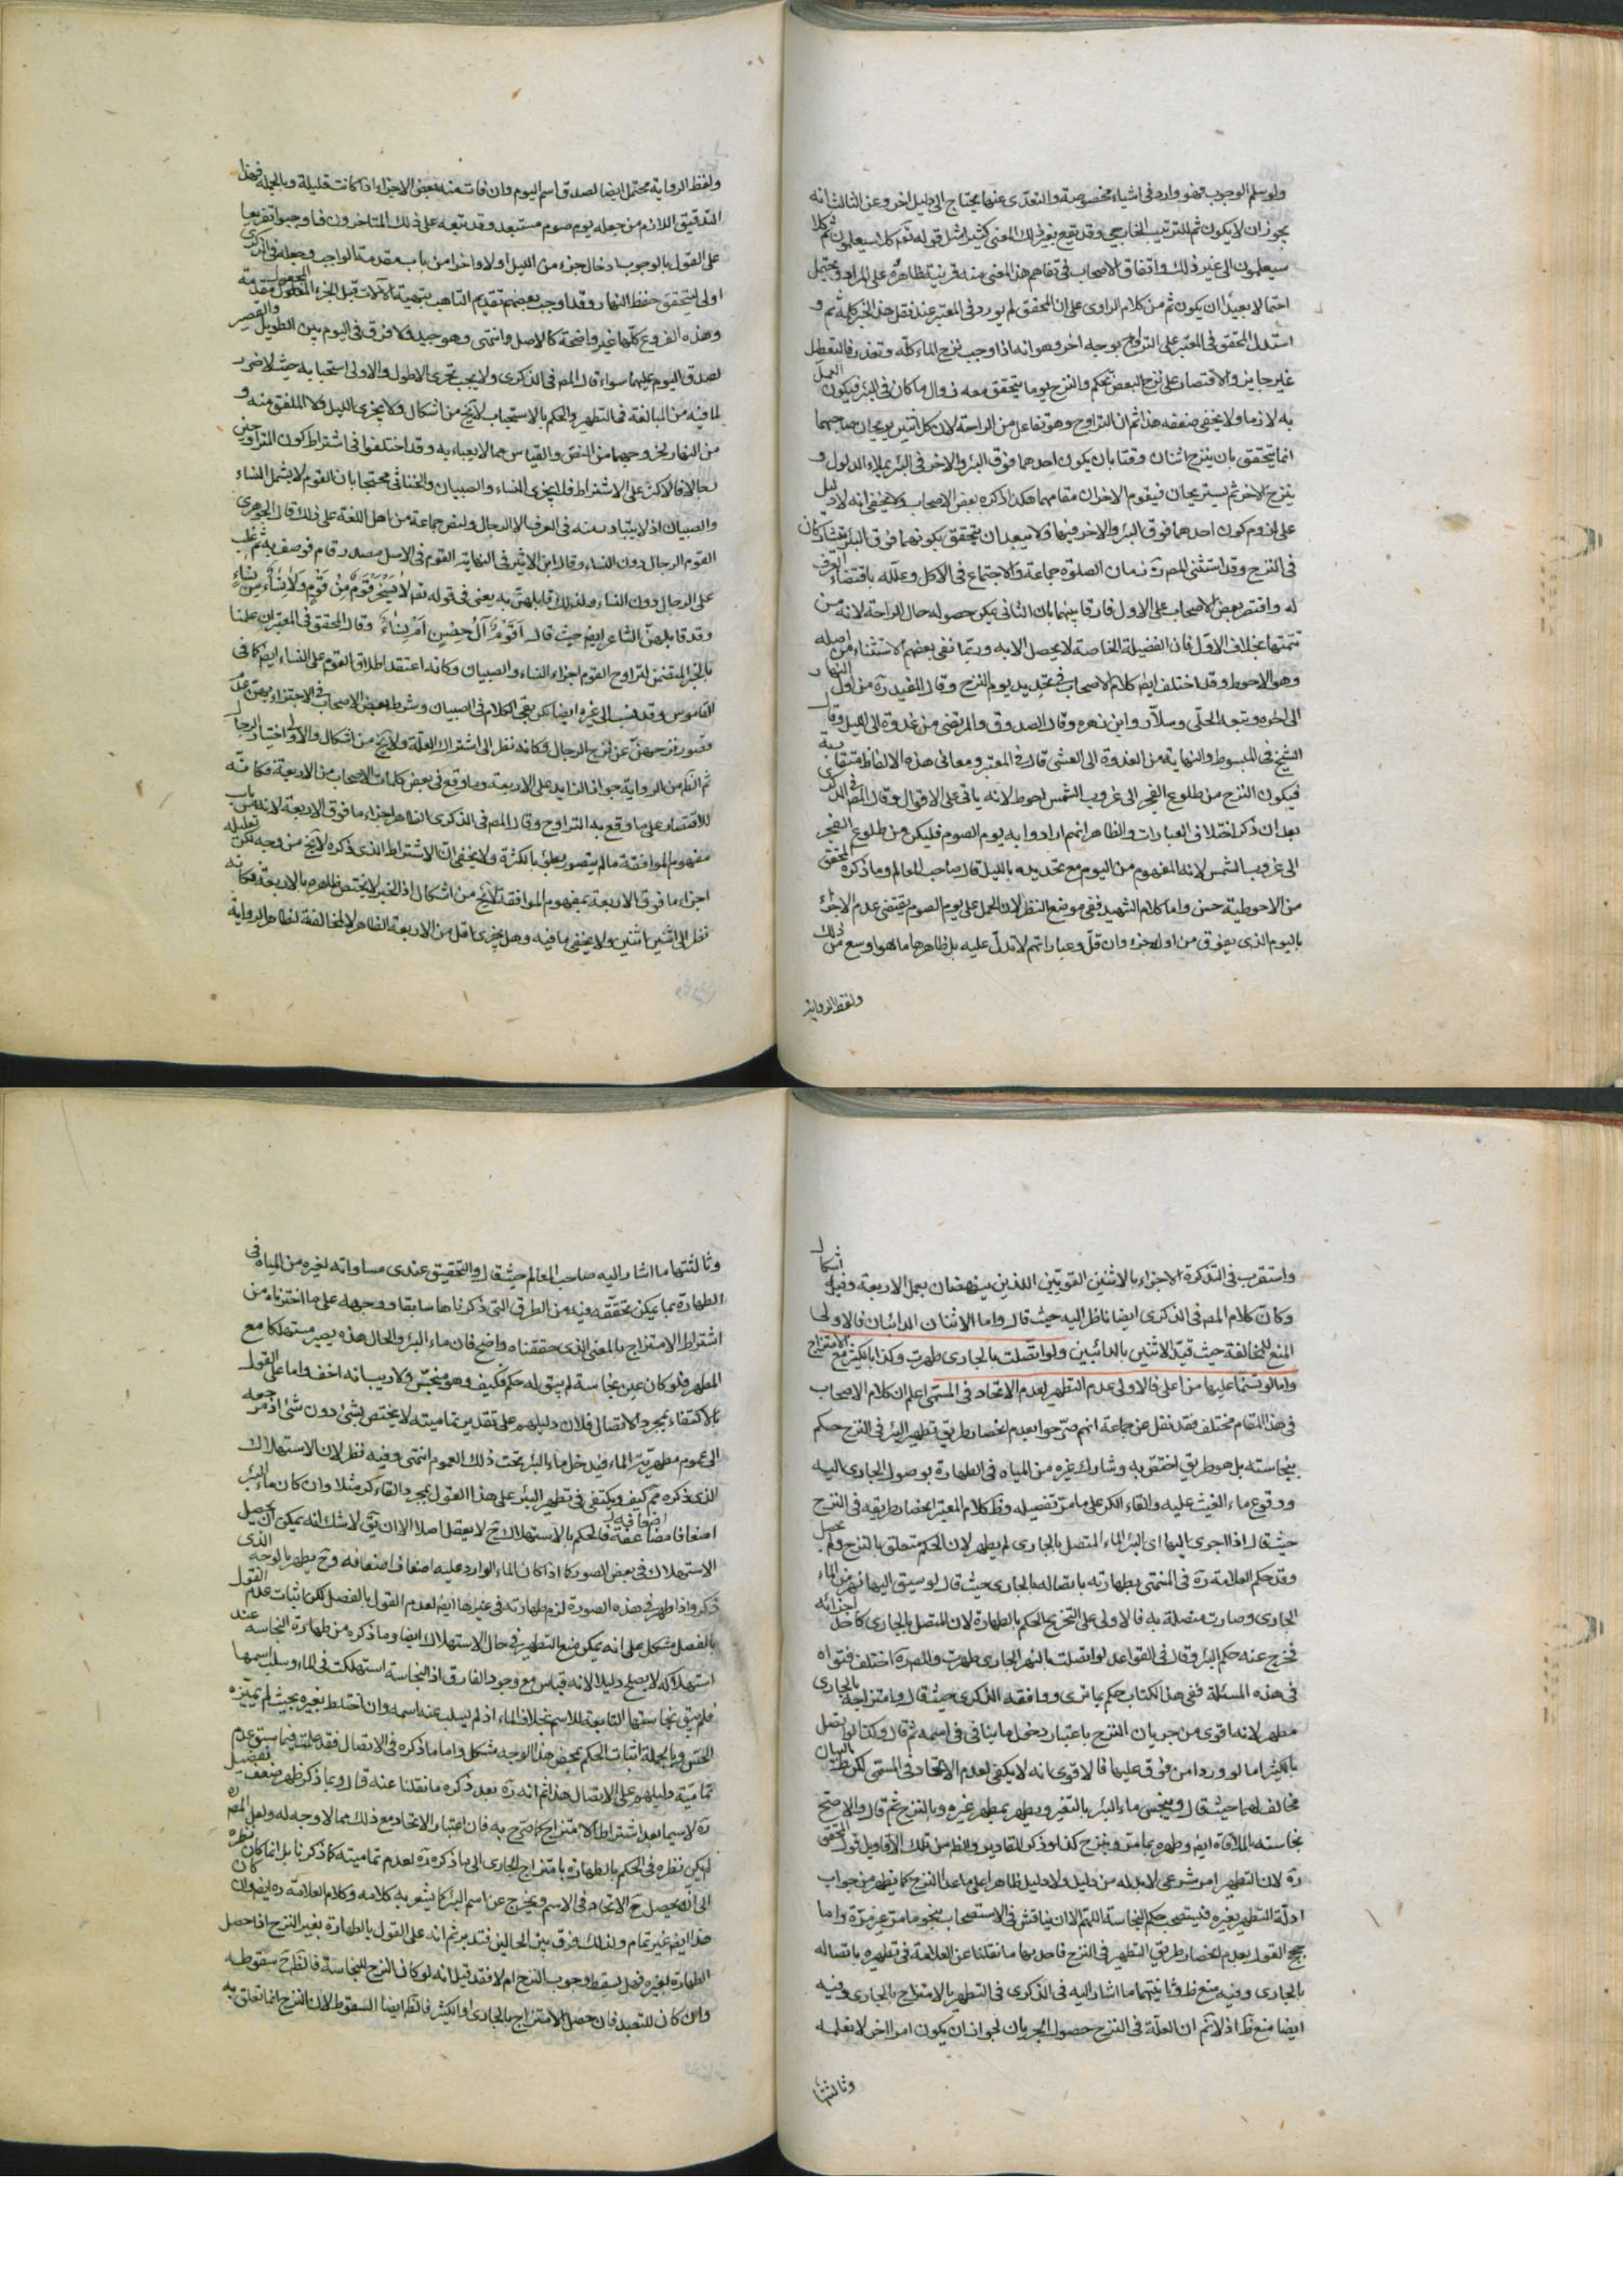 ولو سلم الوجوب فهو وارد في اشياء مخصوصة والتعدى عنها يحتاج الى دليل اخر وعن الثالث انه
يجوز ان لا يكون ثم للترتيب الخارجي وقد تقع بغير ذلك المعنى كثيرا مثل قوله تعم كلا سيعلمون ثم كلا
سيعلمون الى غير ذلك واتفاق الاصحاب في تفاهم هذا المعنى منه قرينة ظاهرة على المراد ويحتمل
احتمالا بعيدا ان يكون ثم من كلام الراوى على ان المحقق لم يورد في المعتبر عند نقل هذا الخبر كلمة ثم و
استدل المحقق في المعتبر على التراوح بوجه اخر وهو انه اذا وجب نزح الماء كله وتعذر فالتعطيل
غير جايز والاقتصار على نزح البعض تحكم والنزح يوما يتحقق معه زوال ما كان في البئر فيكون العمل
به لازما ولا يخفى ضعفه هذا ثم ان التراوح وهو تفاعل من الراحة لان كل اثنين يريحان صاحبهما
انما يتحقق بان ينزح اثنان وقتا بان يكون احدهما فوق البئر والاخر في البئر يملاء الدلو و
ينزح الاخر ثم يستريحان فيقوم الاخران مقامهما هكذا ذكره بعض الاصحاب ولا يخفى انه لا دليل
على لزوم كون احدهما فوق البئر والاخر فيها ولا يبعد ان يتحقق بكونهما فوق البئر يتشاركان
في النزح وقد استثنى المص ره زمان الصلوة جماعة والاجتماع في الاكل وعلله باقتضاء العرف
له واقتصر بعض الاصحاب على الاول فارقا بينهما بان الثاني يمكن حصوله حال الراحة لانه من
تتمتها بخلاف الاول فان الفضيلة الخاصة لا يحصل الا به وربما نفى بعضهم الاستثناء من اصله
وهو الاحوط وقد اختلف ايض كلام الاصحاب في تحديد يوم النزح وقال المفيد ره من اول النهار
الى اخره وتبعه الحلى وسلار وابن زهره وقال الصدوق والمرتضى من غدوة الى الليل وقال
الشيخ في المبسوط والنهاية من الغدوة الى العشى قال في المعتبر ومعاني هذه الالفاظ متقاربة
فيكون النزح من طلوع الفجر الى غروب الشمس احوط لانه ياتى على الاقوال وقال المص في الذكرى
بعد ان ذكر اختلاف العبارات والظاهر انهم ارادوا به يوم الصوم فليكن من طلوع الفجر
الى غروب الشمس لانه المفهوم من اليوم مع تحديده بالليل قال صاحب المعالم وما ذكره المحقق
من الاحوطية حسن واما كلام الشهيد ففي موضع النظر لان الحمل على يوم الصوم يقتضى عدم الاجزاء
باليوم الذى يفوق من اوله جزء وان قل وعباراتهم لا تدل عليه بل ظاهرها ما هو اوسع من ذلك
ولفظ الرواية
ولفظ الرواية محتمل ايضا لصدق اسم اليوم وان فات منه بعض الاجزاء اذا كانت قليلة وبالجملة فهذا
التدقيق اللازم من جعله يوم صوم مستبعد وقد تبعه على ذلك المتاخرون فاوجبوا تفريعا
على القول بالوجوب ادخال جزء من الليل اولا واخرا من باب مقدمة الواجب وجعله في الذكرى
اولى ليتحقق حفظ النهار وقد اوجب بعضهم تقديم التاهب بتهيئة الالات قبل الجزء المجعول مقدمة
وهذه الفروع كلها غير واضحة كالاصل وانتهى وهو جيد ولا فرق في اليوم بين الطويل والقصير
لصدق اليوم عليهما سواء قال المص في الذكرى ولا يجب تحرى الاطول والاولى استحبابه حيث لا ضرر
لما فيه من المبالغة في التطهر والحكم بالاستحباب لايخ من اشكال ولا يجزى الليل ولا الملفق منه و
من النهار لخروجهما من النص والقياس مما لا يعباء به وقد اختلفوا في اشتراط كون المتراوحين
رجالا فالاكثر على الاشتراط فلا يجزى النساء والصبيان والخناثى محتجا بان القوم لا يشمل النساء
والصبيان اذ لا يتبادر منه في العرف الا الرجال ولنص جماعة من اهل اللغة على ذلك قال الجوهرى
القوم الرجال دون النساء وقال ابن الاثير في النهاية القوم في الاصل مصدر قام فوصف به ثم غلب
على الرجال دون النساء ولذلك قابلهن به يعنى في قوله تعم لا يسخر قوم من قوم ولا نساء من نساء
وقد قابلهن الشاعر ايض حيث قال اقوم آل حصن ام نساء وقال المحقق في المعتبر ان عملنا
بالخبر المتضمن لتراوح القوم اجزاء النساء والصبيان وكانه اعتقد اطلاق القوم على النساء ايض كما في
القاموس وقد نسب الى غيره ايضا لكن بقى الكلام في الصبيان وشرط بعض الاصحاب في الاجتزاء بهن عدم
قصور نزحهن عن نزح الرجال وكانه نظر الى اشتراك العلة ولايخ من اشكال والاولى اختيار الرجال
ثم الظ من الرواية جواز الزايد على الاربعة وما وقع في بعض كلمات الاصحاب من الاربعة فكانه
للاقتصار على ما وقع به التراوح وقال المص في الذكرى الظاهر اجزاء ما فوق الاربعة لانه من باب
مفهوم الموافقة ما لم يتصور بطؤ بالكثرة ولا يخفى ان الاشتراط الذى ذكره لايخ من وجه لكن تعليله
اجزاء ما فوق الاربعة بمفهوم الموافقة لايخ من اشكال اذ الخبر لا يختص ظاهره بالاربعة فكانه
نظر الى اثنين اثنين ولا يخفى ما فيه وهل يجزى اقل من الاربعة الظاهر لا لمخالفة لظاهر الرواية
واستقرب في التذكرة الاجزاء بالاثنين القويين اللذين ينهضان بعمل الاربعة وفيه اشكال
وكان كلام المص في الذكرى ايضا ناظر اليه حيث قال واما الاثنان الدائبان فالاولى
المنع للمخالفة حيث قيد الاثنين بالدائبين ولو اتصلت بالجارى طهرت وكذا بالكثير مع الامتزاج
واما لو تسنما عليها من اعلى فالاولى عدم التطهير لعدم الاتحاد في المسمى اعلم ان كلام الاصحاب
في هذا المقام مختلف فقد نقل عن جماعة انهم صرحوا بعدم انحصار طريق تطهير البئر في النزح حكم
بنجاسته بل هو طريق اختص به وشارك غيره من المياه في الطهارة بوصول الجارى اليه
ووقوع ماء الغيث عليه والقاء الكر على ما مر تفصيله وظ كلام المعتبر انحصار طريقه في النزح
حيث قال اذا اجرى اليها اى البئر الماء المتصل بالجارى لم يطهر لان الحكم متعلق بالنزح ولم يحصل
وقد حكم العلامة ره في المنتهى بطهارته باتصاله بالجارى حيث قال لو سيق اليها نهر من الماء
الجارى وصارت متصلة به فالاولى على التخريج الحكم بالطهارة لان المتصل بالجارى كاحد اجزائه
فخرج عنه حكم البئر وقال في القواعد لو اتصلت بالنهر الجارى طهرت والمص ره اختلف فتواه
في هذه المسئلة ففي هذا الكتاب حكم بما ترى ووافقه الذكرى حيث قال وامتزاجه بالجارى
مطهر لانه اقوى من جريان النزح باعتبار دخول مائها في اسمه ثم قال وكذا لو اتصل
بالكثير اما لو وردا من فوق عليها فالاقوى انه لا يكفى لعدم الاتحاد في المسمى لكن ظ البيان
مخالف لهما حيث قال وينجس ماء البئر بالتغير ويطهر بمطهر غيره وبالنزح ثم قال والاصح
نجاسته بالملاقاة ايض وطهره بما مر وينزح كذا وذكر المقادير والظ من تلك الاقاويل قول المحقق
ره لان التطهير امر شرعى لابد له من دليل ولا دليل ظاهرا على ما عدا النزح كما يظهر من جواب
ادلة التطهير بغيره فيستصحب حكم النجاسة اللهم الا ان يناقش في الاستصحاب بنحو ما مر غير مرة واما
حجج القول بعدم انحصار طريق التطهير في النزح فاحديها ما نقلنا عن العلامة في تطهيره باتصاله
بالجارى وفيه منع ظ وثانيتهما ما اشار اليه في الذكرى في التطهير بالامتزاج بالجارى وفيه
ايضا منع ظ اذ لا نم ان العلة في النزح حصول الجريان لجواز ان يكون امرا اخر لا نعلمه
وثالثتها
وثالثتها ما اشار اليه صاحب المعالم حيث قال والتحقيق عندى مساواته لغيره من المياه في
الطهارة بما يمكن تحققه فيه من الطرق التى ذكرناها سابقا ووجهه على ما اخترناه من
اشتراط الامتزاج بالمعنى الذى حققناه واضح فان ماء البئر والحال هذه يصير مستهلكا مع
المطهر فلو كان عين نجاسة لم يبق له حكم فكيف وهو متنجس ولا ريب انه اخف واما على القول
بالاكتفاء بمجرد الاتصال فلان دليلهم على تقدير تماميته لا يختص بشئ دون شئ اذ مرجعه
الى عموم مطهرية الماء فيدخل ماء البئر تحت ذلك العموم انتهى وفيه نظر لان الاستهلاك
الذى ذكره ثم كيف ويكتفى في تطهير البئر على هذا القول بمجرد القاء كر مثلا وان كان ماء البئر
اضعافا مضاعفة اضعافه فالحكم بالاستهلاك ح لا يعقل اصلا الا ان يق لا شك انه يمكن ان يحصل
الاستهلاك في بعض الصور كما اذا كان الماء الوارد عليه اضعاف اضعافه وح يطهر بالوجه الذى
ذكر واذا طهر في هذه الصورة لزم طهارته في غيرها ايض لعدم القول بالفصل لكن اثبات عدم القول
بالفصل مشكل على انه يمكن منع التطهير في حال الاستهلاك ايضا وما ذكره من طهارة النجاسة عند
استهلاكه لا يصلح دليلا لانه قياس مع وجود الفارق اذ النجاسة استهلكت في الماء وسلب اسمها
فلم يبق نجاستها التابعة للاسم بخلاف الماء اذ لم يسلب عنه اسمه وان اختلط بغيره بحيث لم يميزه
الحس وبالجملة اثبات الحكم بمحض هذا الوجه مشكل واما ما ذكره في الاتصال فقد علمت فيما سبق عدم
تمامية دليلهم على الاتصال هذا ثم انه ره بعد ذكره ما نقلنا عنه قال وبما ذكر ظهر ضعف تفصيل
ره لاسيما بعد اشتراط الامتزاج كما صرح به فان اعتبار الاتحاد مع ذلك مما لا وجه له ولعل المص ره
لم يكن نظره في الحكم بالطهارة بامتزاج الجارى الى ما ذكره ره لعدم تماميته كما ذكرنا بل انما كان نظره
الى انه يحصل ح الاتحاد في الاسم ويخرج عن اسم البئر كما يشعر به كلامه وكلام العلامة ره ايض وان كان
هذا ايض غير تمام ولذلك فرق بين الحالين فتدبر ثم انه على القول بالطهارة بغير النزح اذا حصل
الطهارة بغيره فهل يسقط وجوب النزح ام لا فقد قيل انه لو كان النزح للنجاسة فالظ ح سقوطه
وان كان للتعبد فان حصل الامتزاج بالجارى او الكثير فالظ ايضا السقوط لان النزح انما تعلق به